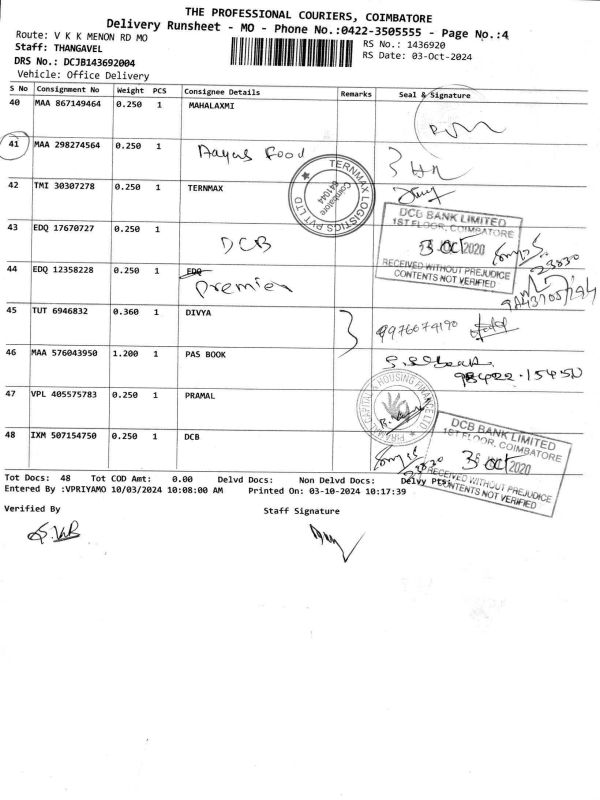 THE PROFESSIONAL COURIERS, COIMBATORE
Delivery Runsheet - MO - Phone No.:0422-3505555 - Page No.:4
Route: V K K MENON RD MO
RS No.: 1436920
Staff: THANGAVEL
RS Date: 03-Oct-2024
DRS No.: DCJB143692004
Vehicle: Office Delivery
S No Consignment No Weight PCS Consignee Details Remarks Seal & Signature
40 MAA 867149464 0.250 1 MAHALAXMI
41 MAA 298274564 0.250 1 Aayas Food
42 TMI 30307278 0.250 1 TERNMAX
TERNMAX LOGISTICS PVT LTD
Coimbatore
641044
43 EDQ 17670727 0.250 1 DCB
DCB BANK LIMITED
1ST FLOOR, COIMBATORE
3 OCT 2020
RECEIVED WITHOUT PREJUDICE
CONTENTS NOT VERIFIED
23830
44 EDQ 12358228 0.250 1 EDQ
Premier
45 TUT 6946832 0.360 1 DIVYA
9976074190
46 MAA 576043950 1.200 1 PAS BOOK
47 VPL 405575783 0.250 1 PRAMAL
CAPITAL & HOUSING FINANCE LTD
48 IXM 507154750 0.250 1 DCB
DCB BANK LIMITED
1ST FLOOR, COIMBATORE
OCT 2020
RECEIVED WITHOUT PREJUDICE
CONTENTS NOT VERIFIED
23830
Tot Docs: 48 Tot COD Amt: 0.00 Delvd Docs: Non Delvd Docs: Delvy Pts:
Entered By :VPRIYAMO 10/03/2024 10:08:00 AM Printed On: 03-10-2024 10:17:39
Verified By Staff Signature